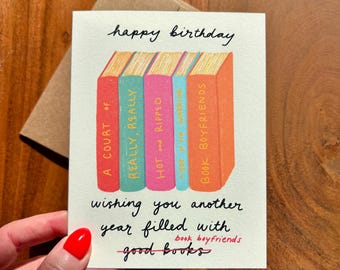 happy birthday
A COURT OF
REALLY, REALLY
HOT AND RIPPED
BOOK BOYFRIENDS
wishing you another
year filled with
book boyfriends
good books